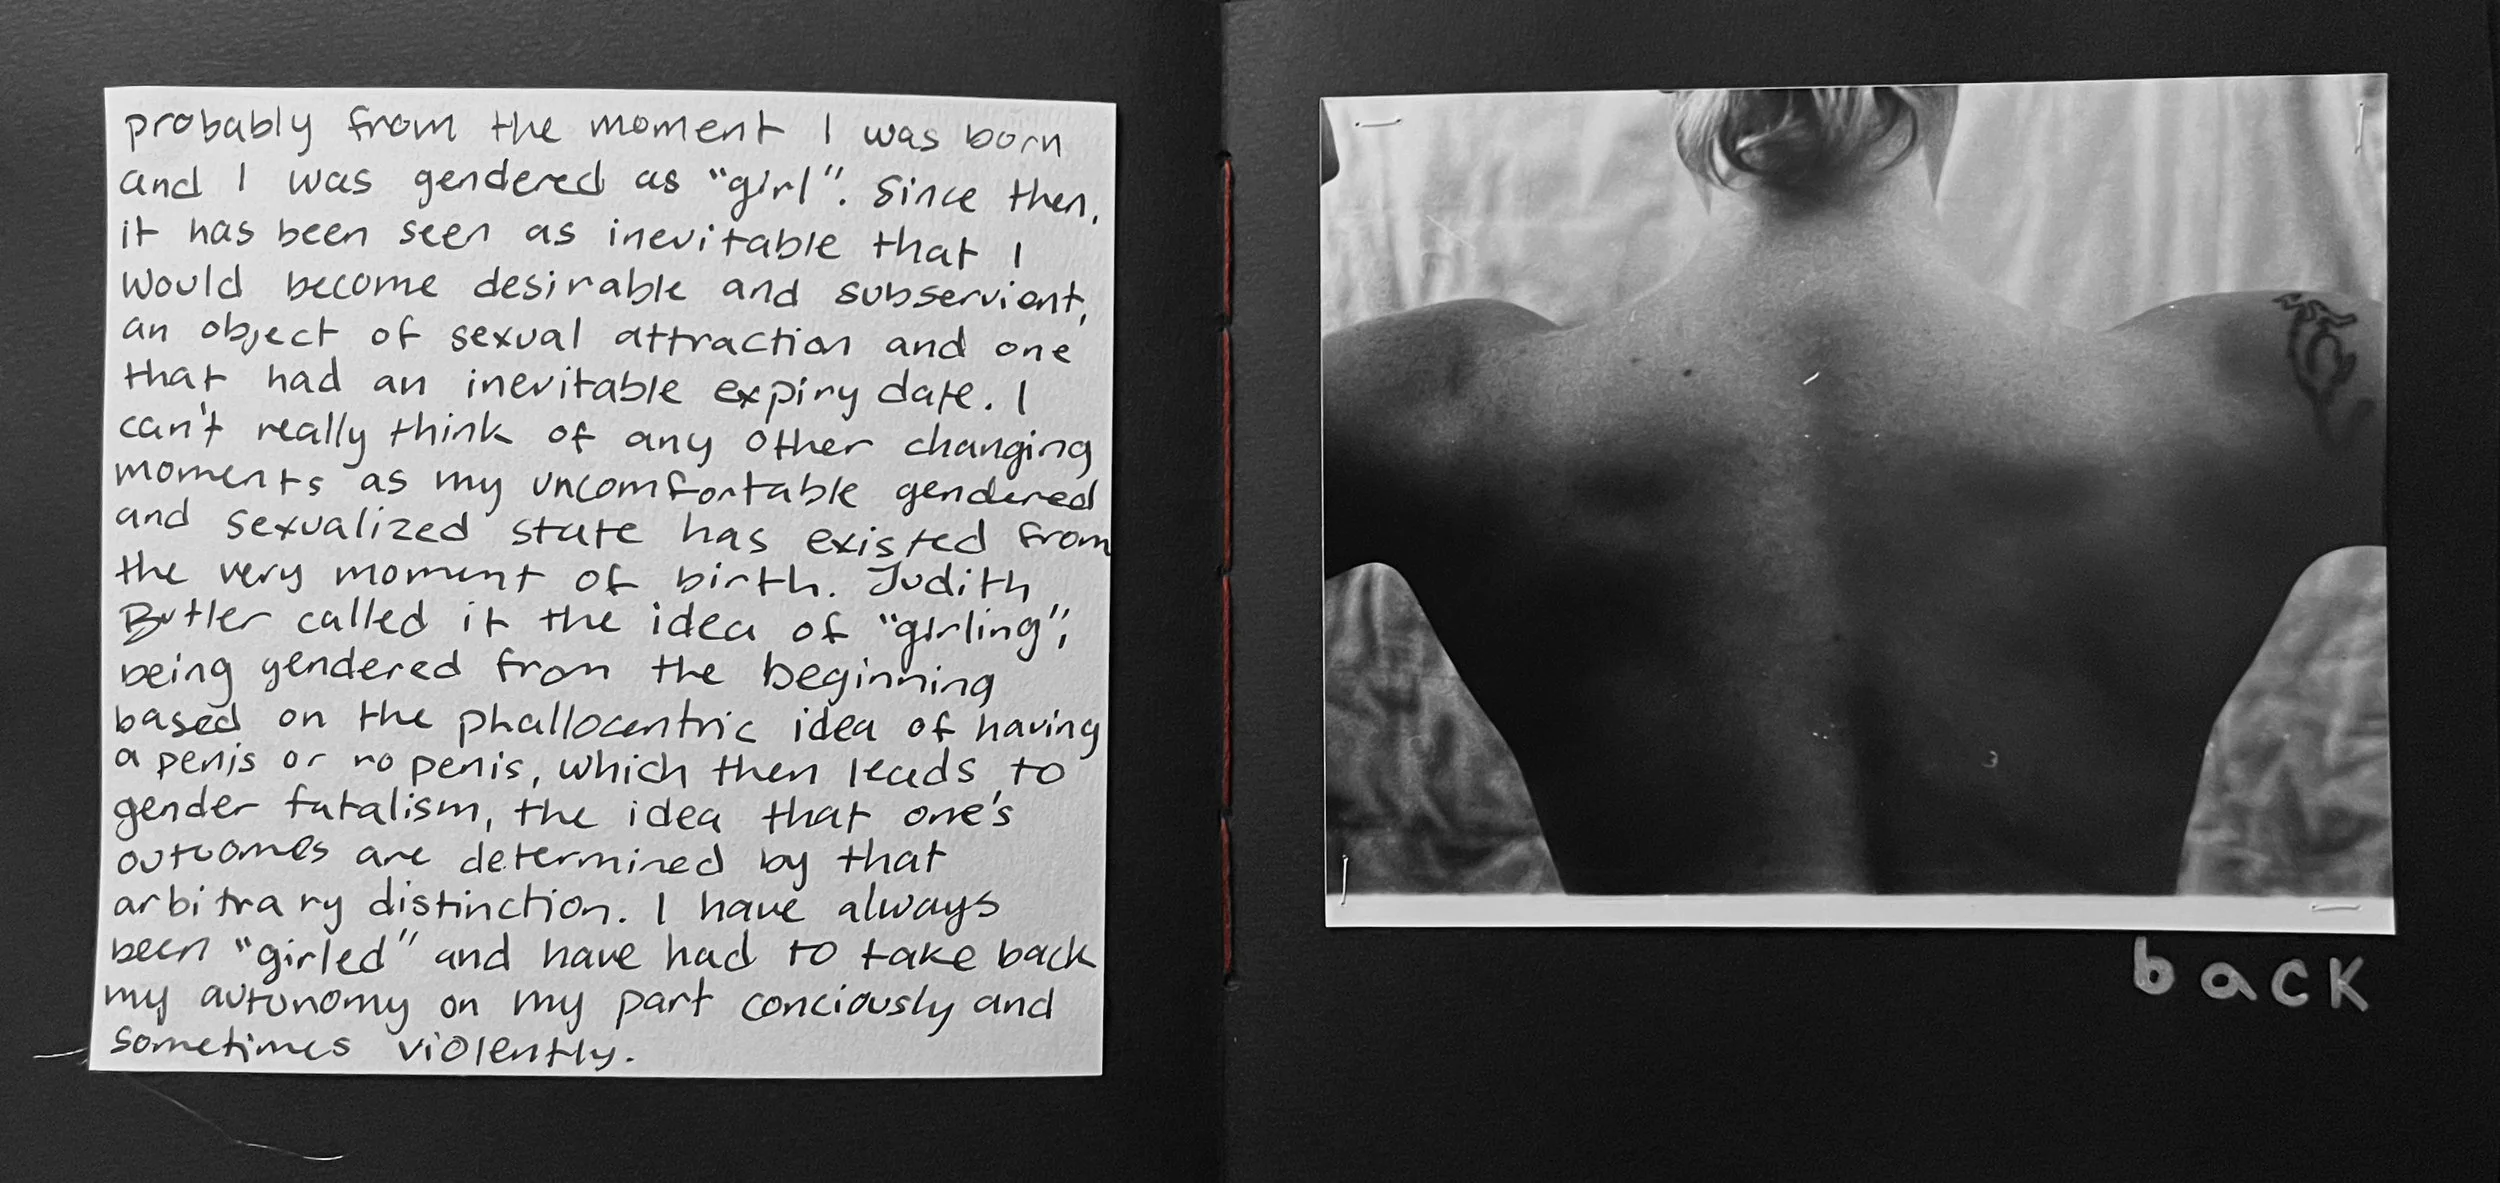 probably from the moment I was born
and I was gendered as "girl". Since then,
it has been seen as inevitable that I
would become desirable and subservient,
an object of sexual attraction and one
that had an inevitable expiry date. I
can't really think of any other changing
moments as my uncomfortable gendered
and sexualized state has existed from
the very moment of birth. Judith
Butler called it the idea of "girling",
being gendered from the beginning
based on the phallocentric idea of having
a penis or no penis, which then leads to
gender fatalism, the idea that one's
outcomes are determined by that
arbitrary distinction. I have always
been "girled" and have had to take back
my autonomy on my part conciously and
sometimes violently.
back